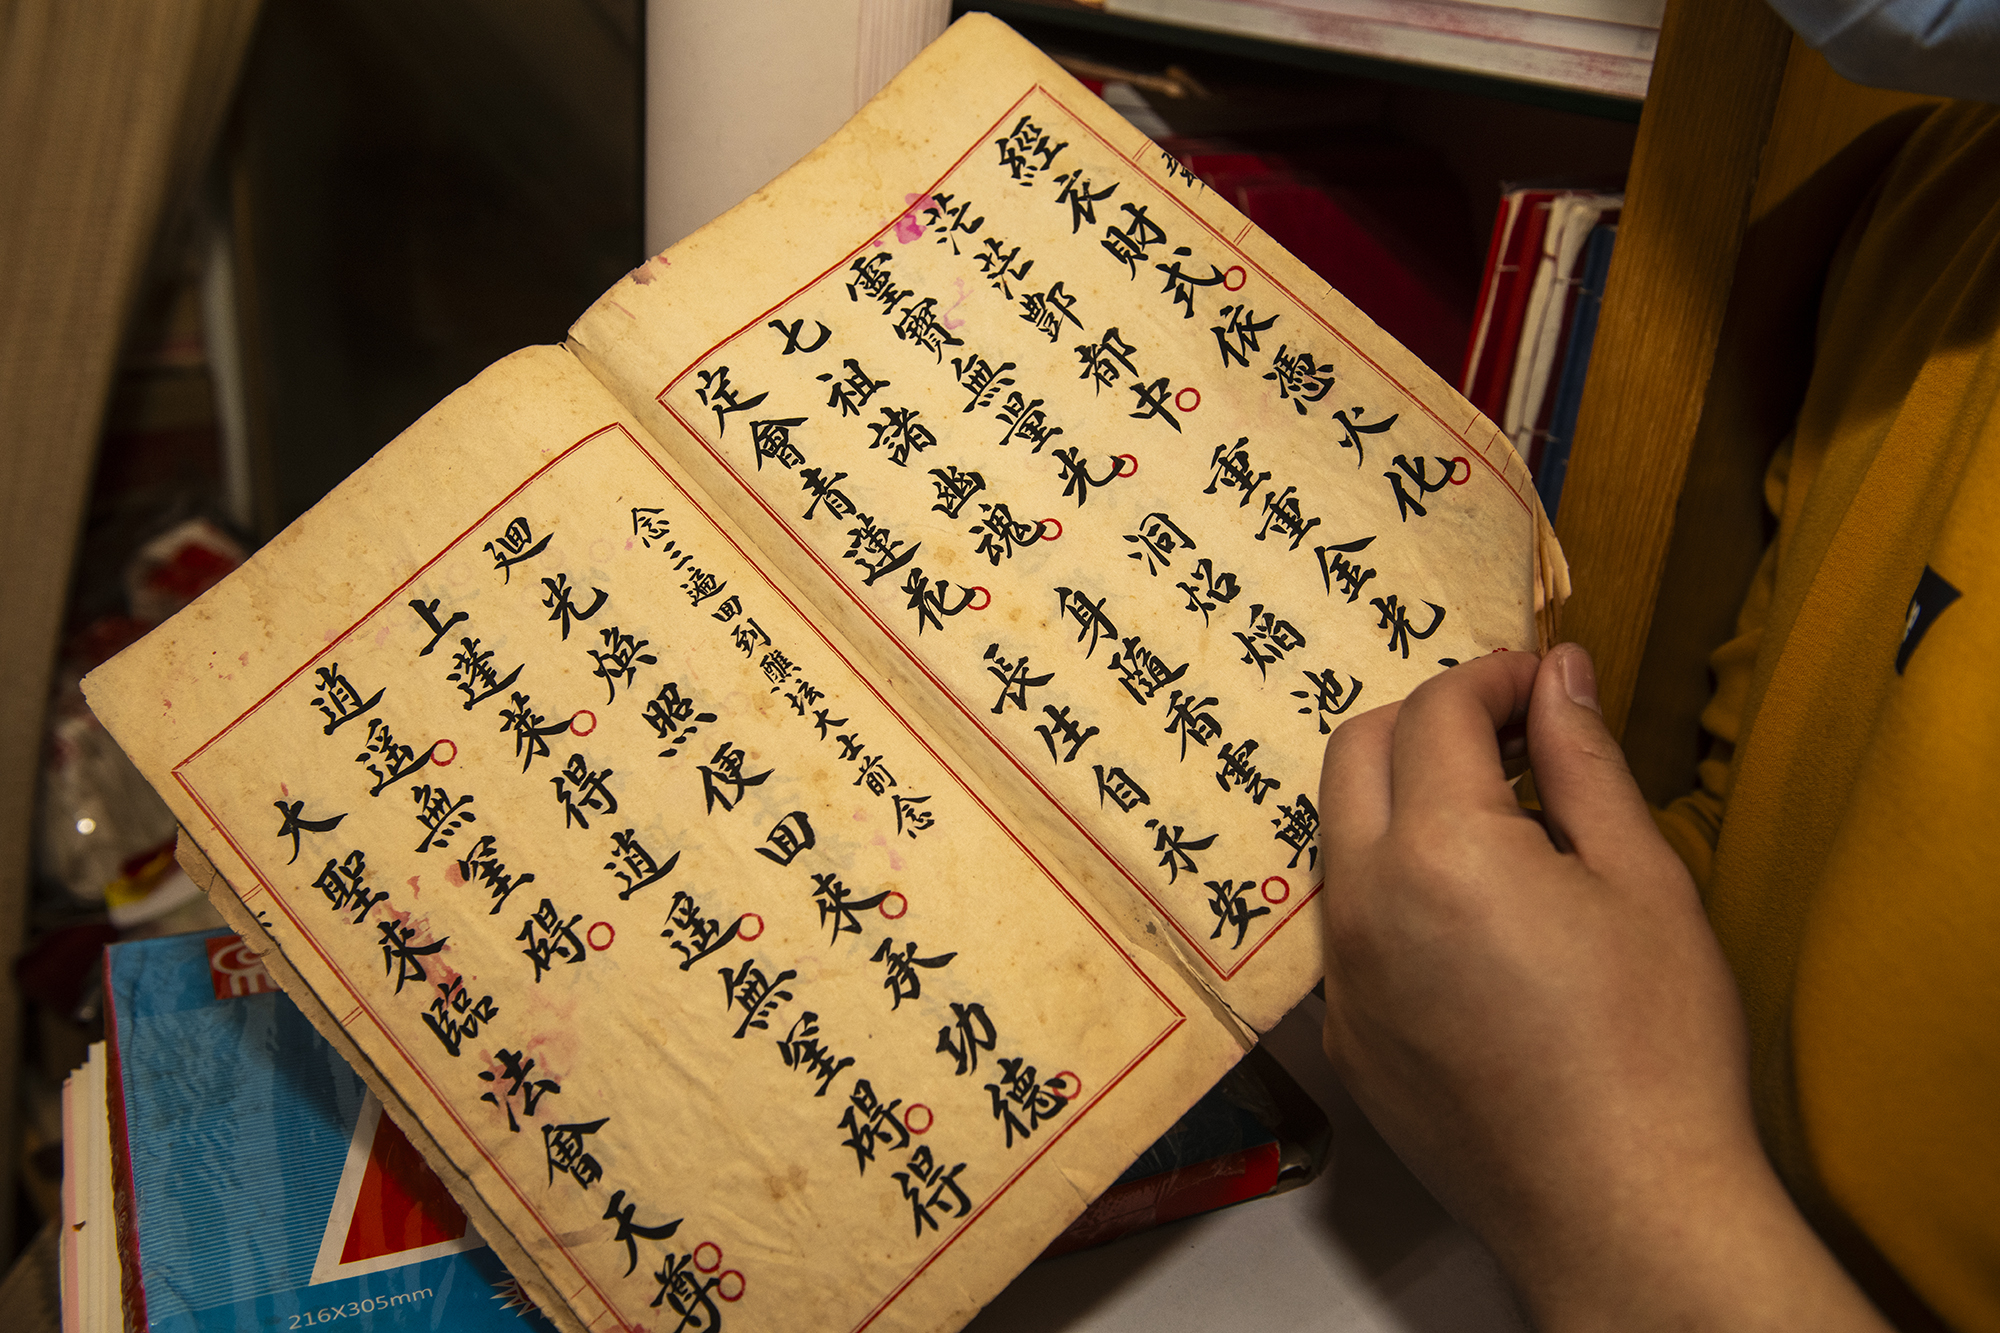 經衣財式○依憑火化○
茫茫酆都中○重重金光
靈寶無量光○洞炤焰池
七祖諸幽魂○身隨香雲輿
定會青蓮花○長生自永安○
念三遍回到醮坛大士前念
廻光煥照便回來○承功德○
上蓬萊○得逍遥○無窒碍○得
逍遥○無窒碍○
大聖來臨法會天尊○○
216X305mm